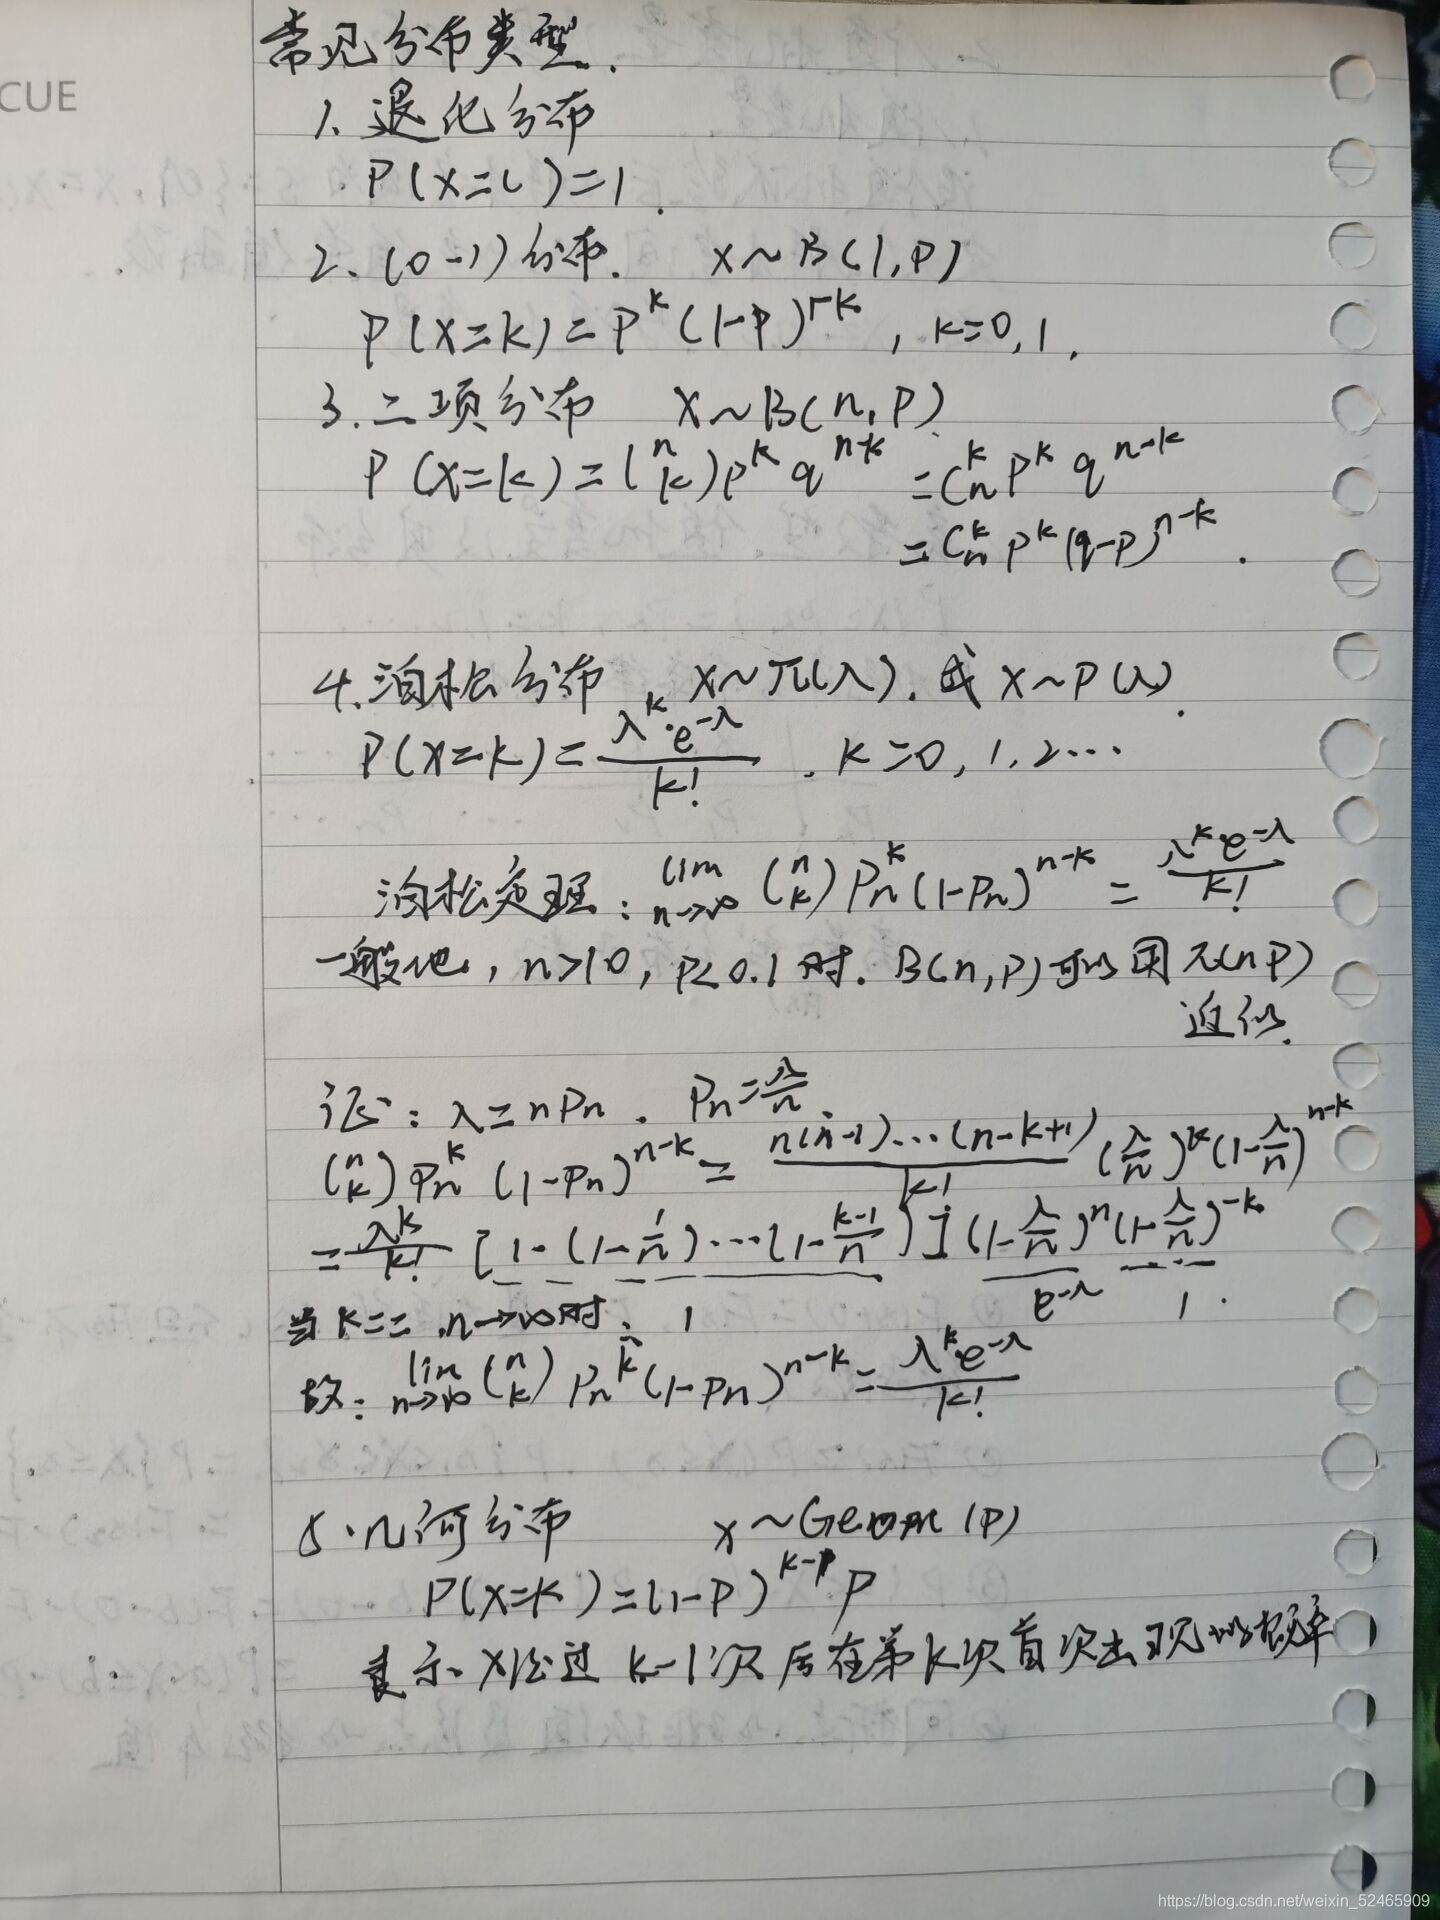 CUE
常见分布类型.
1. 退化分布
P(X=C)=1.
2、(0-1)分布. X~B(1,P)
P(X=k)=P^k(1-P)^{1-k}, k=0,1.
3.二项分布 X~B(n,P).
P(X=k)=(n k)P^k q^{n-k} =C_n^k P^k q^{n-k}
=C_n^k P^k(q-P)^{n-k}.
4.泊松分布, X~π(λ).或X~P(λ).
P(X=k)=λ^k·e^{-λ}/k! . k=0,1,2…
泊松定理: lim n→∞ (n k)P_n^k(1-P_n)^{n-k}=λ^k·e^{-λ}/k!
一般地,n>10,P<0.1时.B(n,P)可以用π(nP)
近似.
证:λ=nPn. Pn=λ/n.
(n k)P_n^k(1-Pn)^{n-k}=n(n-1)…(n-k+1)/k! (λ/n)^k(1-λ/n)^{n-k}
=λ^k/k! [1-(1-1/n)…(1-(k-1)/n)](1-λ/n)^n(1-λ/n)^{-k}
当k== ,n→∞时、 1 e^{-λ} 1.
故: lim n→∞ (n k)P_n^k(1-Pn)^{n-k}=λ^k·e^{-λ}/k!
5.几何分布 X~Geom(P)
P(X=k)=(1-P)^{k-1}P
表示X经过k-1次后在第k次首次出现的概率
https://blog.csdn.net/weixin_52465909